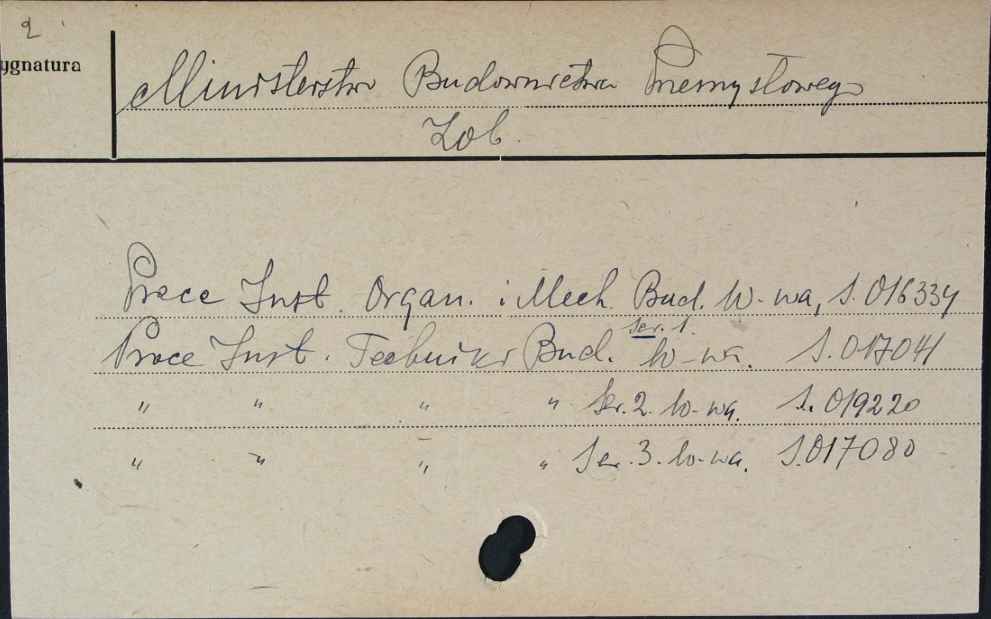 2
ygnatura
Ministerstwo Budownictwa Przemysłowego
Zob.
Prace Inst. Organ. i Mech. Bud. W-wa, S. 016334
Prace Inst. Techniki Bud. Ser. 1. W-wa. S. 017041
" " " " Ser. 2. W-wa. S. 019220
" " " " Ser. 3. W-wa. S. 017080